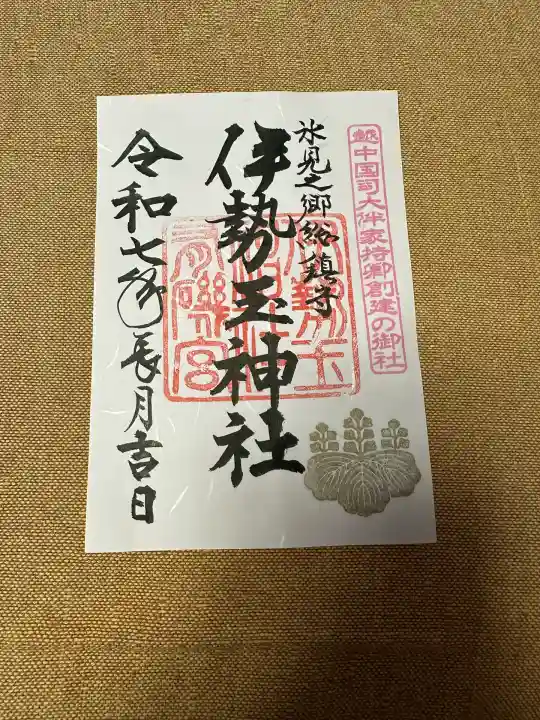 越中国司大伴家持卿創建の御社
氷見之郷総鎮守
伊勢玉神社
令和七年長月吉日